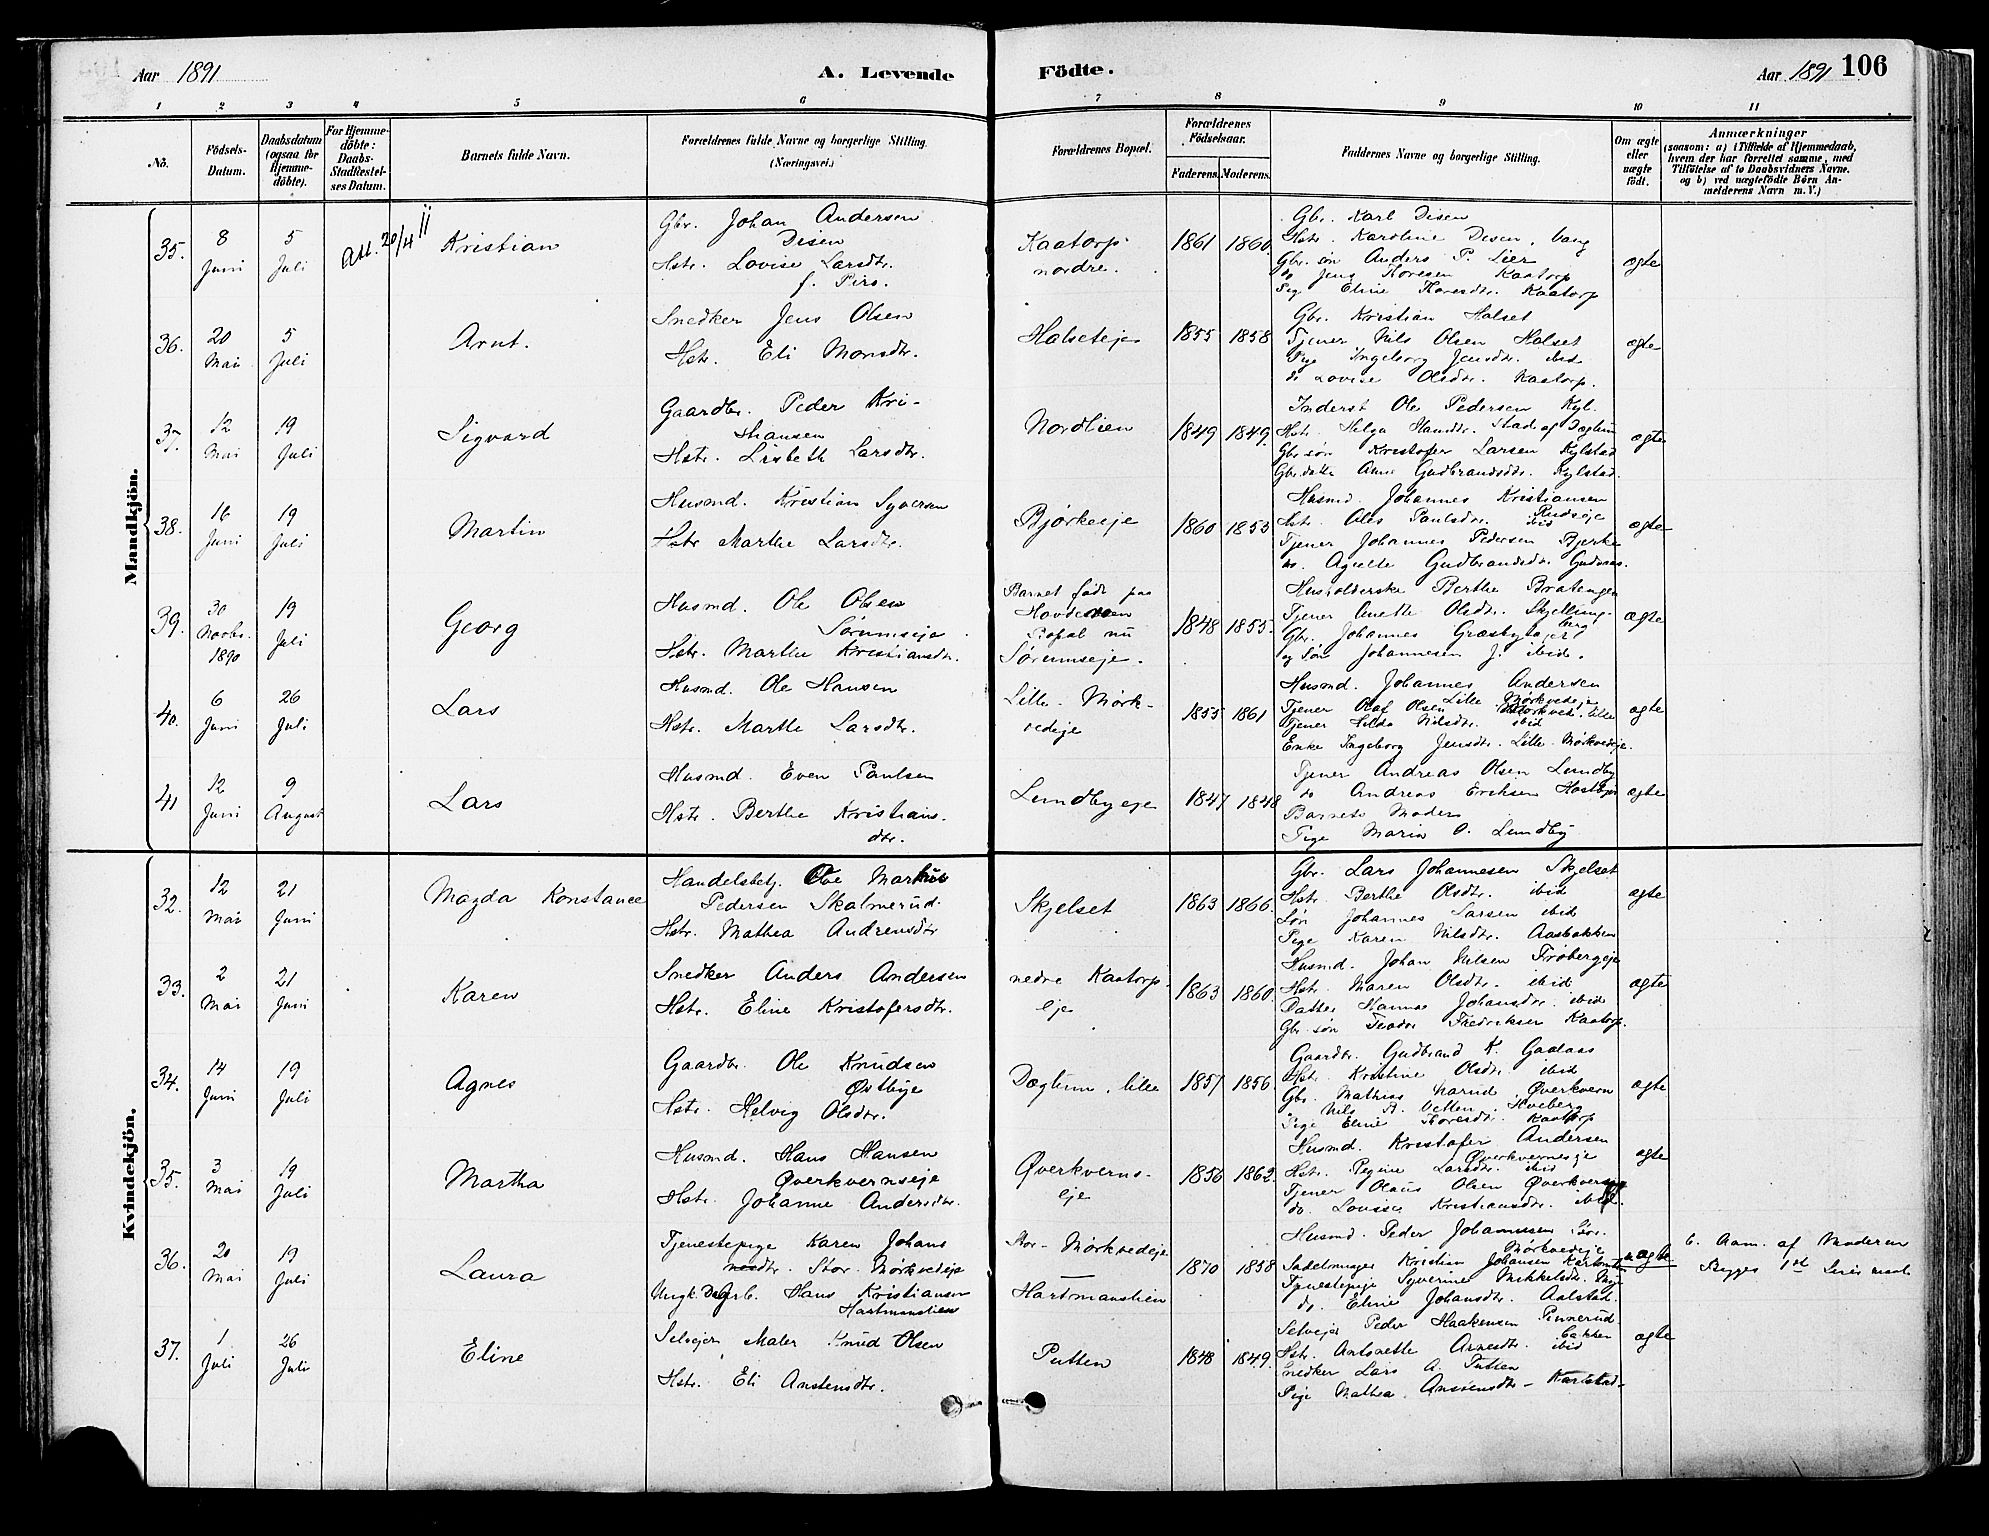 Aar 1891
A. Levende
Födte.
Aar 1891
106
1 2 3 4 5 6 7 8 9 10 11
No.
Födsels-
Datum.
Daabsdatum
(ogsaa for
Hjemme-
döbte).
For Hjemme-
döbte:
Daabs-
Stadfæstel-
ses Datum.
Barnets fulde Navn.
Forældrenes fulde Navne og borgerlige Stilling.
(Næringsvei.)
Forældrenes Bopæl.
Forældrenes
Födselsaar.
Faderens. Moderens.
Faddernes Navne og borgerlige Stilling.
Om ægte
eller
uægte
födt.
Anmærkninger
(saasom: a) i Tilfælde af Hjemmedaab,
hvem der har forrettet samme, med
Tilföielse af to Daabsvidners Navne.
og b) ved uægtefödte Börn An-
melderens Navn m. V.)
Mandkjön.
35.
8
Juni
5
Juli
Att. 20/4 11
Kristian
Gbr. Johan Andersen
Disen
Hstr. Lovise Larsdtr.
Kaatorp
nordre.
1861 1860.
Gbr. Karl Disen
Hstr. Karoline Disen, Vang
Gbr. søn Anders P. Lier
do Jens Toresen Kaatorp
Pige Eline Toresdtr. Kaatorp
ægte
36.
20
Mai
5
Juli
Arnt.
Snedker Jens Olsen
Hstr. Eli Monsdtr.
Halseteje
1855 1858.
Gbr. Kristian Halset
Tjener Nils Olsen Halset
Pige Ingeborg Jensdtr. ibid
do Lovise Olsdtr. Kaatorp.
ægte
37.
12
Mai
19
Juli
Sigvard
Gaardbr. Peder Kri-
stiansen
Hstr. Lisbeth Larsdtr.
Nordlien
1849 1849.
Inderst Ole Pedersen Kyl.
Hstr. Helga Hansdtr. stad af Dæglum
Gbr. søn Kristofer Larsen Kylstad
Gbr. datter Anne Gudbrandsdtr. Kylstad.
ægte
38.
16
Juni
19
Juli
Martin
Husmd. Kristian Syversen
Hstr. Marthe Larsdtr.
Bjørkeeje
1860 1853
Husmd. Johannes Kristiansen
Rudseje
Hstr. Oles Paulsdtr. ibid
Tjener Johannes Pedersen Bjerke
do. Agnethe Gudbrandsdtr.
ægte
39.
30
Novbr.
1890
19
Juli
Georg
Husmd. Ole Olsen
Sørumseje
Hstr. Marthe Kristiansdtr.
Barnet født paa
Hovderoen
Bopæl nu
Sørumseje.
1848 1855.
Husholderske Berthe Bratengen
Tjener Anette Olsdtr. Skjelling-
berg
Gbr. Johannes Græsbyhagen
og Søn Johannesen J. ibid.
ægte
40.
6
Juni
26
Juli
Lars
Husmd. Ole Hansen
Hstr. Marthe Larsdtr.
Lille-Mørk-
vedeje
1855 1861
Husmd. Johannes Andersen
Lille Mørkvedeje
Tjener Olaf Olsen Mørkved. lille
Tjener Hilda Nilsdtr. ibid
Enke Ingeborg Jensdtr. Lille-Mørkvedeje.
ægte
41
12
Juni
9
August
Lars
Husmd. Even Paulsen
Hstr. Berthe Kristians-
dtr.
Lundbyeje
1847 1848
Tjener Andreas Olsen Lundby
do Andreas Eriksen
Barnets Moder
Pige Maria O. Lundby
ægte
Kvindekjön.
32.
12
Mai
21
Juni
Magda Konstance
Handelsbetj. Ole Markus
Pedersen Skalmerud.
Hstr. Mathea Andreasdtr
Skjelset
1863 1866.
Gbr. Lars Johannesen Skjelset
Hstr. Berthe Olsdtr. ibid
Søn Johannes Larsen ibid
Pige Karen Nilsdtr. Aasbakken
ægte
33.
2
Mai
21
Juni
Karen
Snedker Anders Andersen
Hstr. Eline Kristofersdtr.
nedre Kaatorp-
eje
1863 1860.
Husmd. Johan Nilsen Frøbergeje
Hstr. Maren Olsdtr. ibid
Datter Hanna Johansdtr. ibid
Gbr. søn Teodor Fredriksen Kaatorp.
ægte
34.
14
Juni
19
Juli
Agnes
Gaardbr. Ole Knudsen
Østbye
Hstr. Helvig Olsdtr.
Dæglum, lille
1857 1856.
Gaardbr. Gudbrand K. Gaalaas
Hstr. Kristine Olsdtr. ibid
Gbr. Mathias Narud Øverkvern
Nils A. Vetten. Hveberg
Pige Eline Toresdtr. Kaatorp
ægte
35.
3
Mai
19
Juli
Martha
Husmd. Hans Hansen
Øverkvernseje
Hstr. Johanne Andersdtr.
Øverkverns-
eje
1856 1862.
Husmd. Kristofer Andersen
Øverkvernseje
Hstr. Pegine Larsdtr. ibid
Tjener Olaus Olsen Øverkvern
do. Lovise Kristiansdtr. ibid.
ægte
36.
20
Mai
19
Juli
Laura
Tjenestepige Karen Johans
dtr. Stor-Mørkvedeje
Ungk. Dagarb. Hans Kristiansen
Hartmanslien
Stor-Mørkvedeje
Hartmanslien
1870 1858
Husmd. Peder Johannesen Stor.
Mørkvedeje
Sadelmager Kristian Johansen
Tjenestepige Syverine Mikkelsdtr.
do. Eline Johansdtr. Aalstad.
uægte
b. Anm. af Moderen
Begges 1ste Leiermaal
37.
1
Juli
26
Juli
Eline
Selvejer Maler Knud Olsen
Hstr. Eli Anstensdtr.
Putten
1848 1849.
Selvejer Peder Haakensen Finnerud
bakken
Hstr. Antonette Arnesdtr. ibid
Snedker Lars A. Putten
Pige Mathea Anstensdtr - Karlstad-
ægte